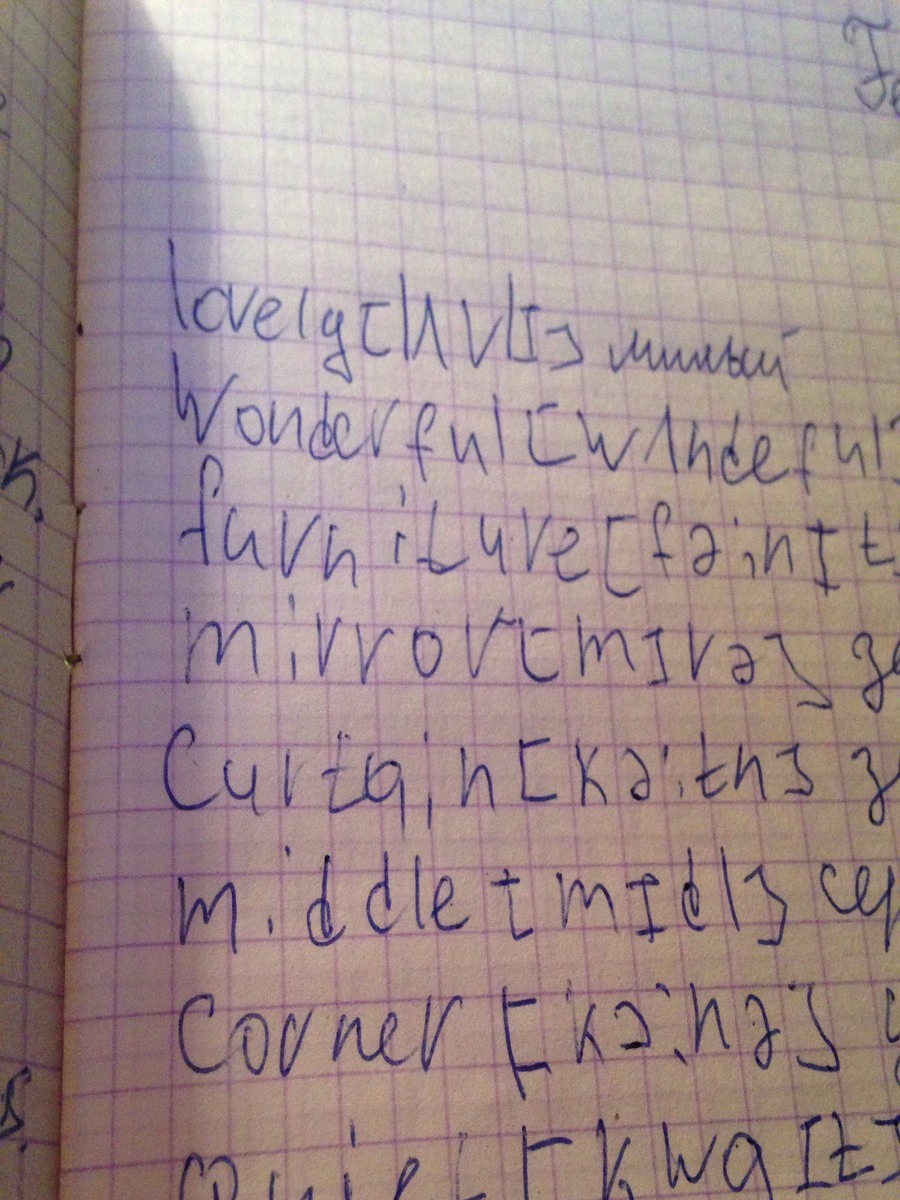 lovely [lʌvlɪ] милый
Wonderful [wʌndeful]
furniture [fə:nɪt
mirror [mɪrə]
Curtain [kə:tn]
middle [mɪdl] сер
Corner [kə:nə]
[kwaɪt